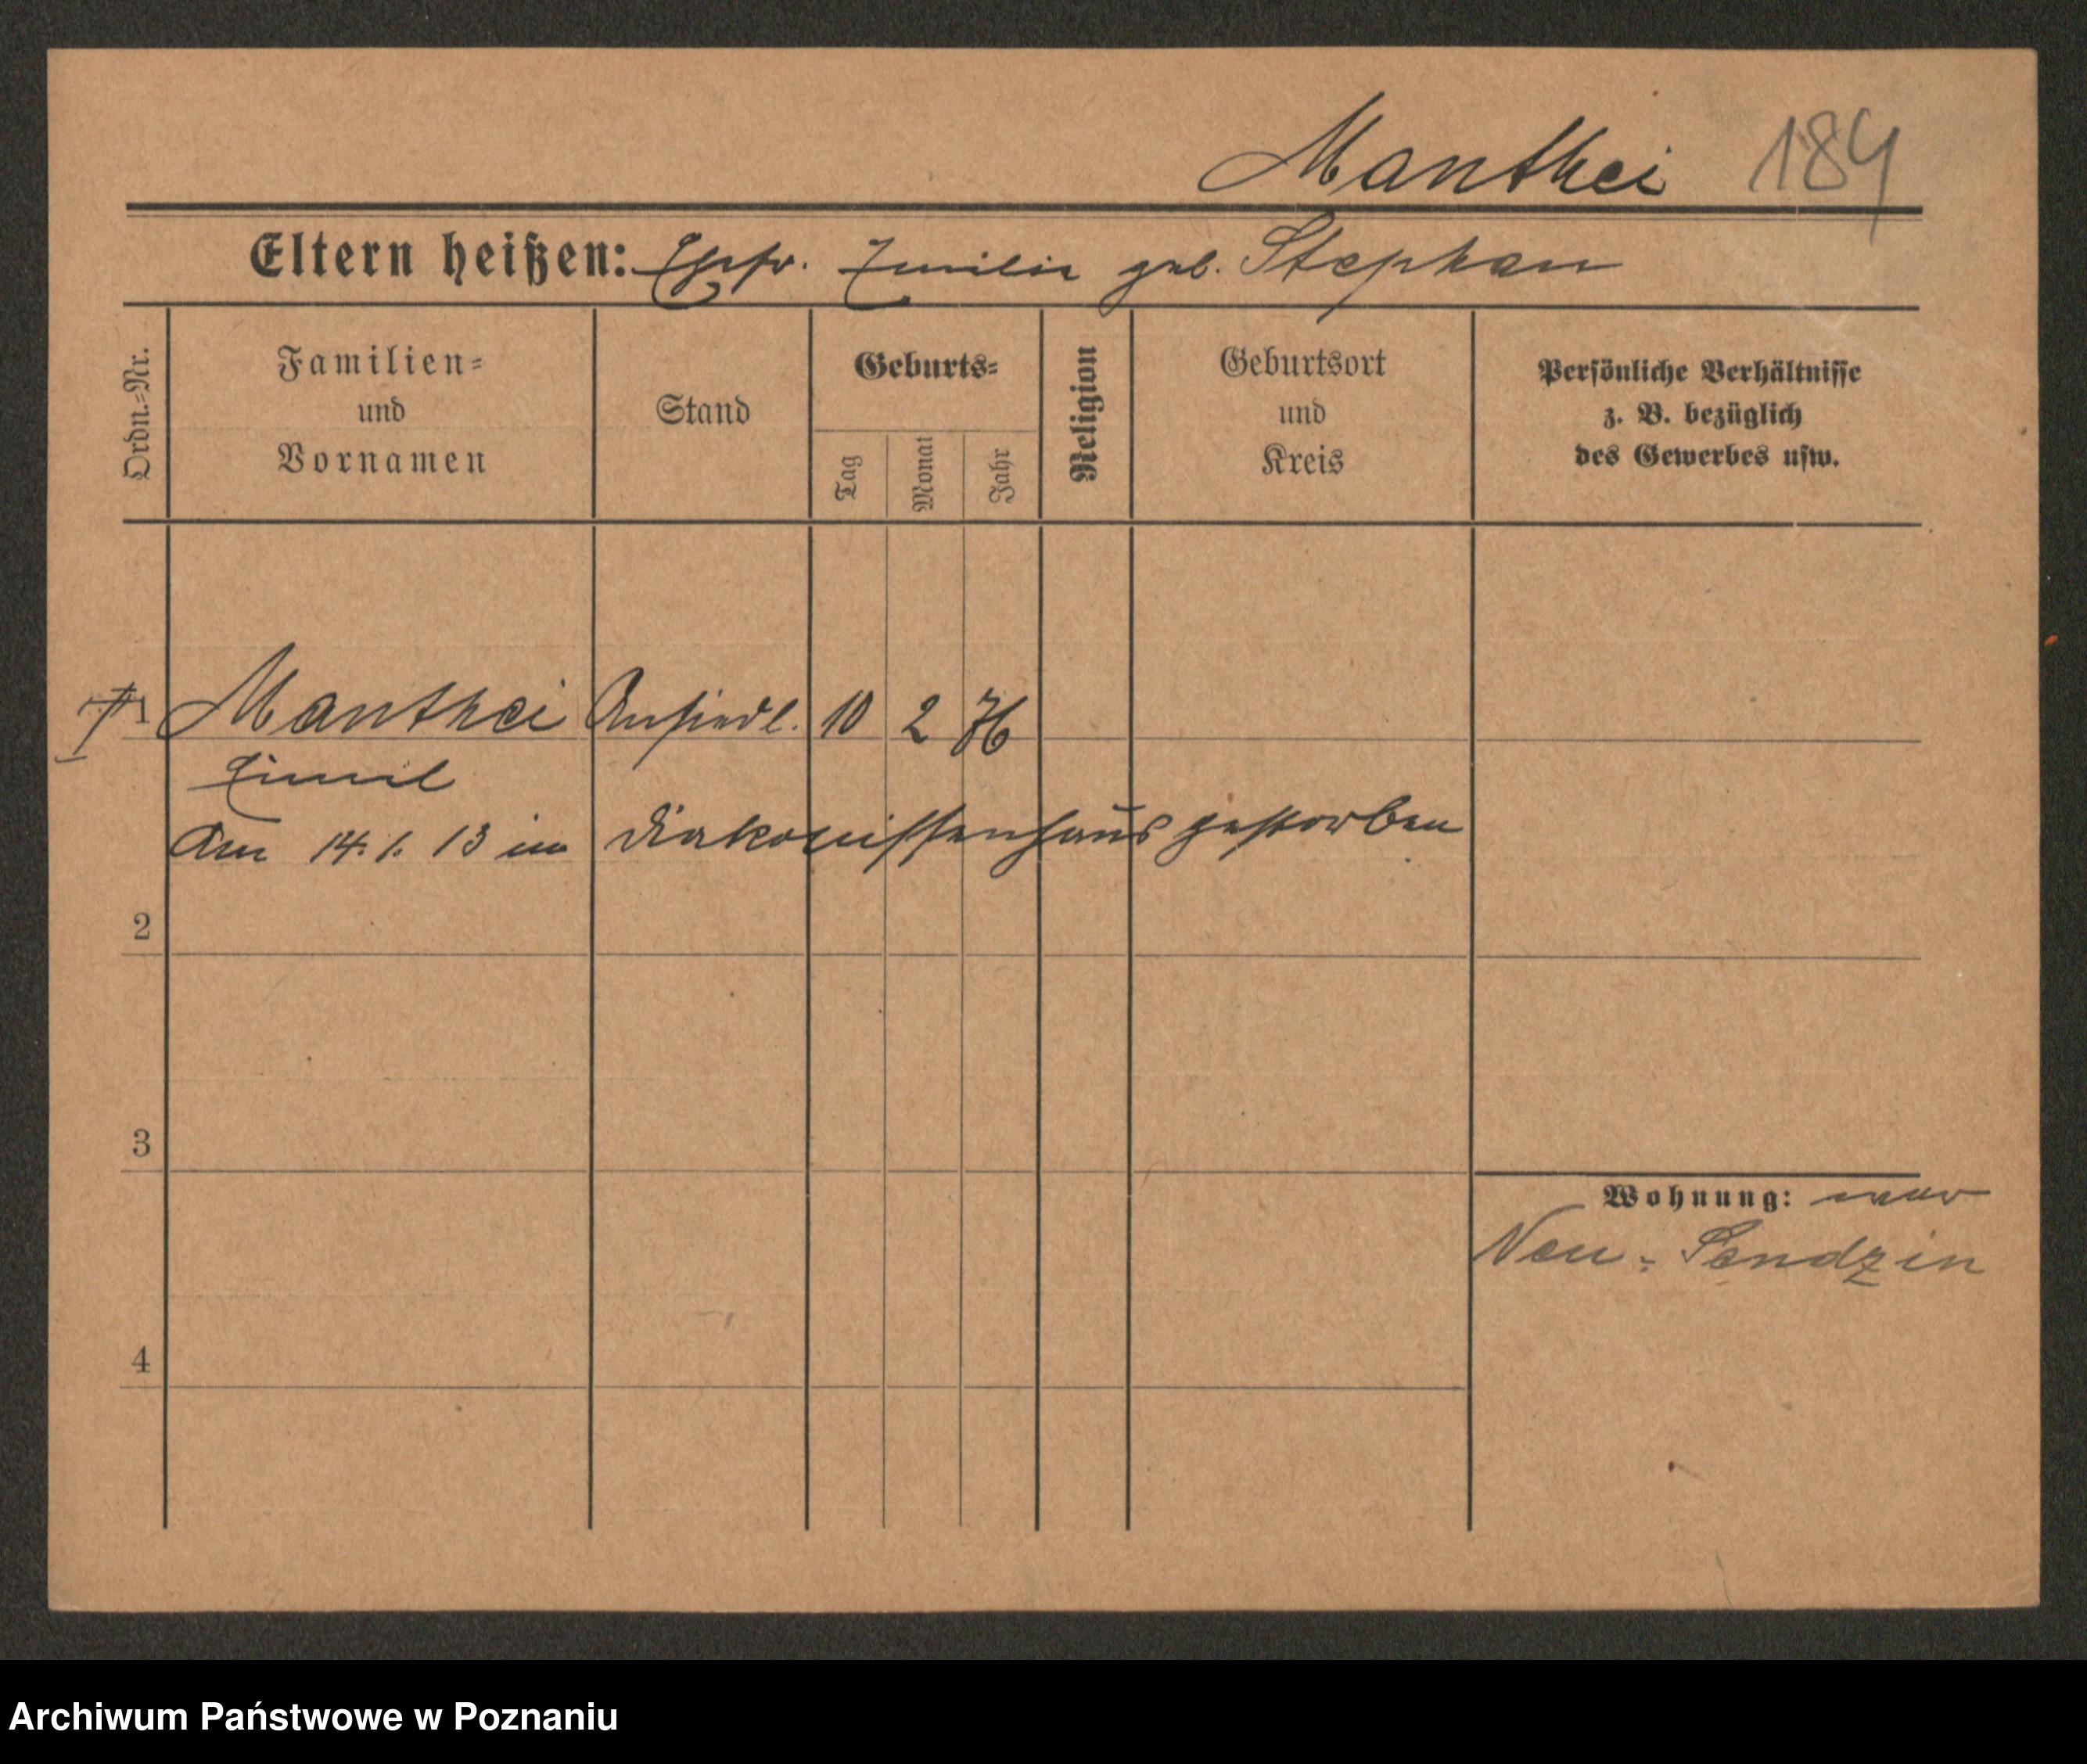 Manthei 184
Eltern heißen: Ehefr. Emilie geb. Stephan
Ordn.-Nr.
Familien-
und
Vornamen
Stand
Geburts-
Tag
Monat
Jahr
Religion
Geburtsort
und
Kreis
Persönliche Verhältnisse
z. B. bezüglich
des Gewerbes usw.
1 Manthei Ansiedl. 10 2 76
Emil
Am 14. 1. 13 im Diakonissenhaus gestorben
2
3
Wohnung: war
Neu-Sendzin
4
Archiwum Państwowe w Poznaniu